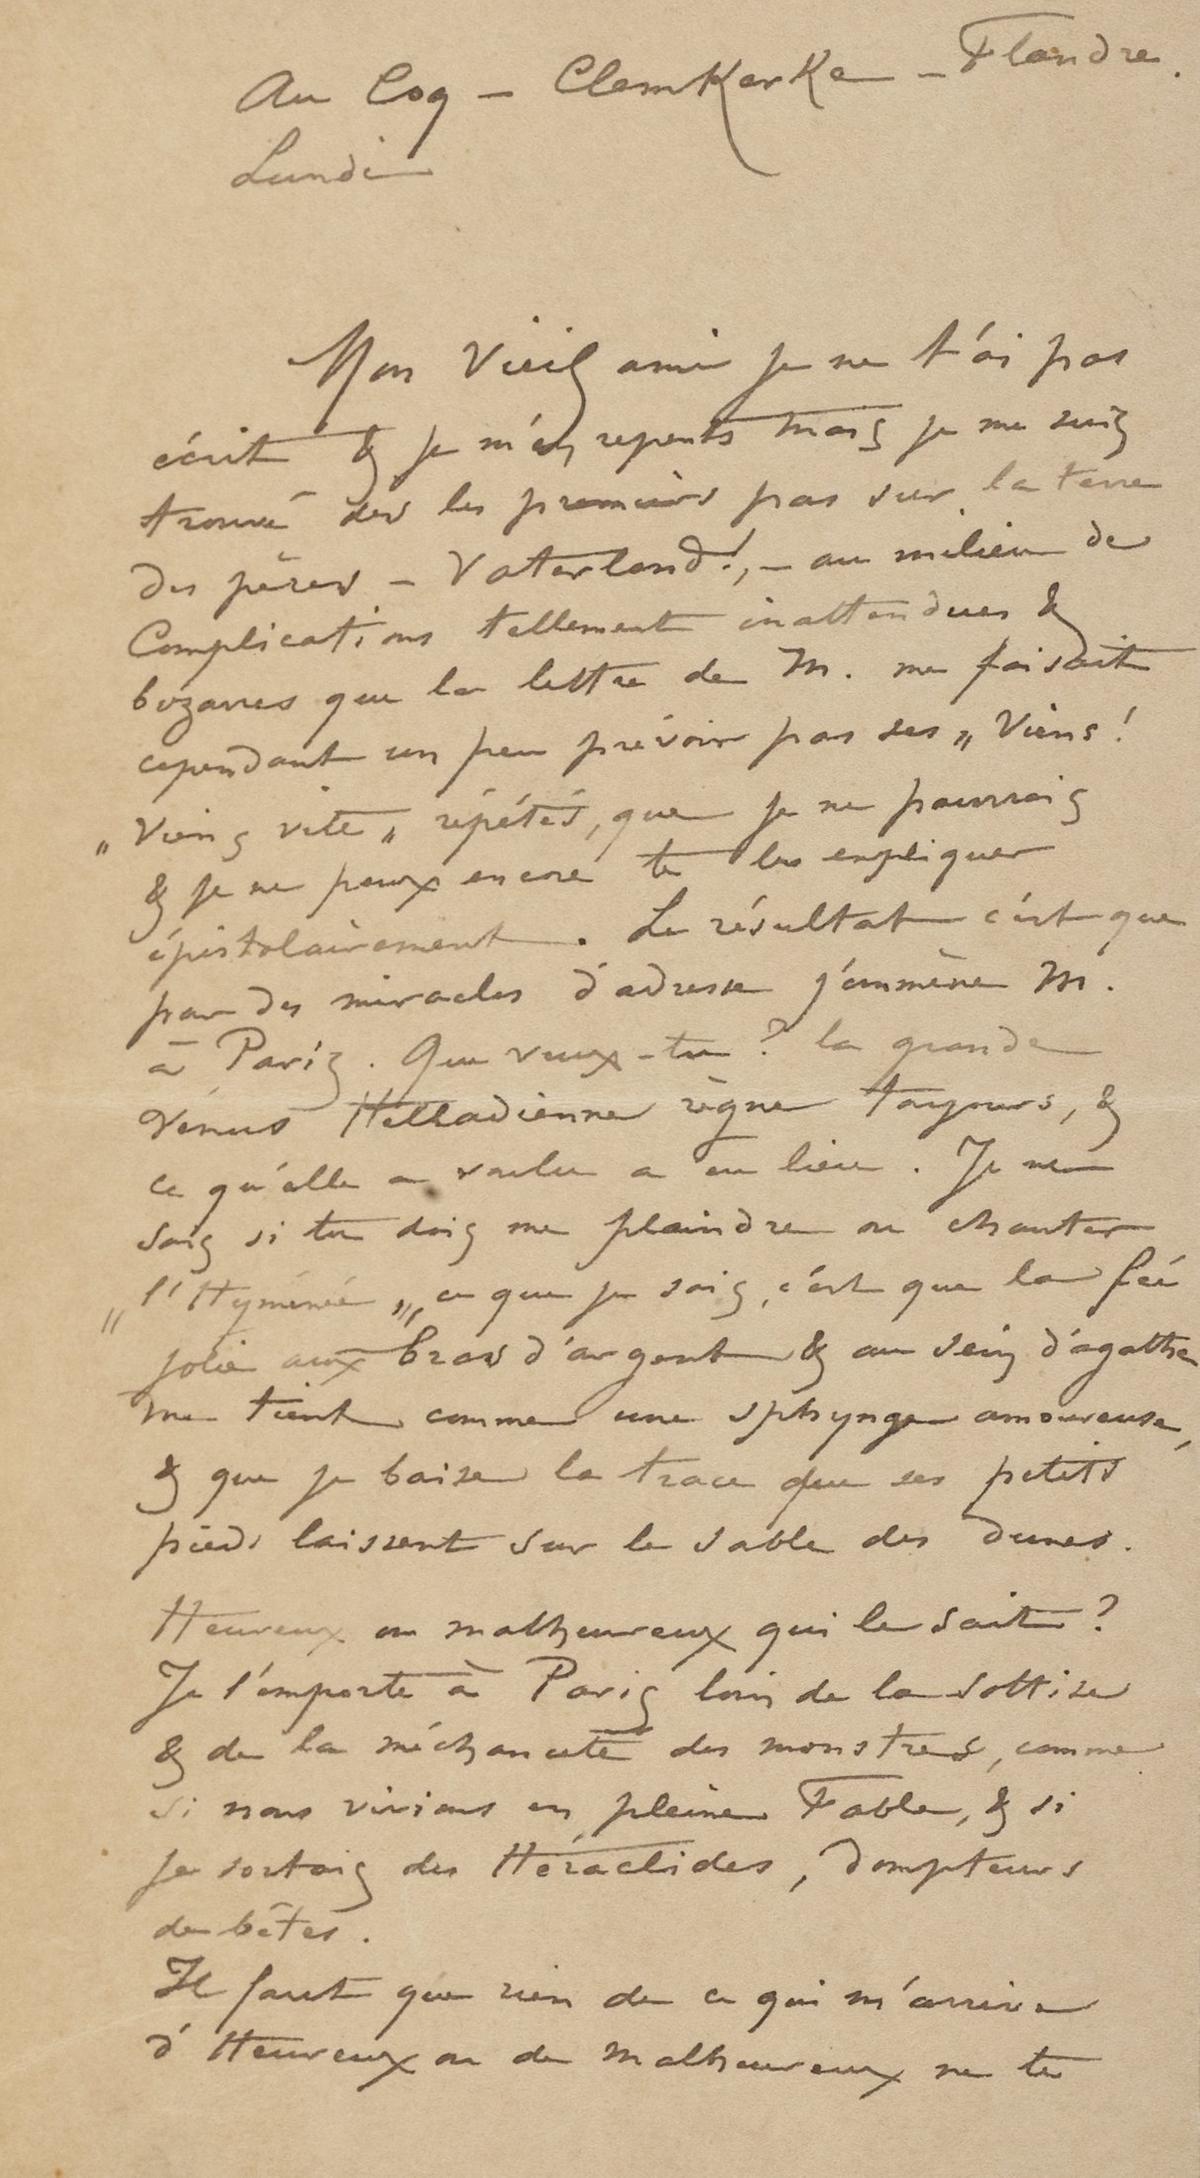 Au Coq – Clemkerke – Flandre.
Lundi
Mon Vieil ami je ne t'ai pas
écrit & je m'en repents mais je me suis
trouvé des les premiers pas sur la terre
des pères – Vaterland!, – au milieu de
Complications tellement inattendues &
bizarres que la lettre de M. me faisait
cependant un peu prévoir par ses „ Viens!
„ Viens vite „ répétés, que je ne pourrais
& je ne peux encore te les expliquer
épistolairement. Le résultat c'est que
par des miracles d'adresse j'emmène M.
à Paris. Que veux-tu? la grande
Vénus Helladienne règne toujours, &
ce qu'elle a voulu a eu lieu. Je ne
sais si tu dois me plaindre ou chanter
„ l'Hyménée „, ce que je sais, c'est que la fée
jolie aux bras d'argent & au sein d'agathe
me tient comme une sphynge amoureuse,
& que je baise la trace que ses petits
pieds laissent sur le sable des dunes.
Heureux ou malheureux qui le sait?
Je l'emporte à Paris loin de la sottise
& de la méchanceté des monstres, comme
si nous vivions en pleine Fable, & si
je sortais des Héraclides, dompteurs
de bêtes.
Il faut que rien de ce qui m'arrive
d'Heureux ou de Malheureux ne te